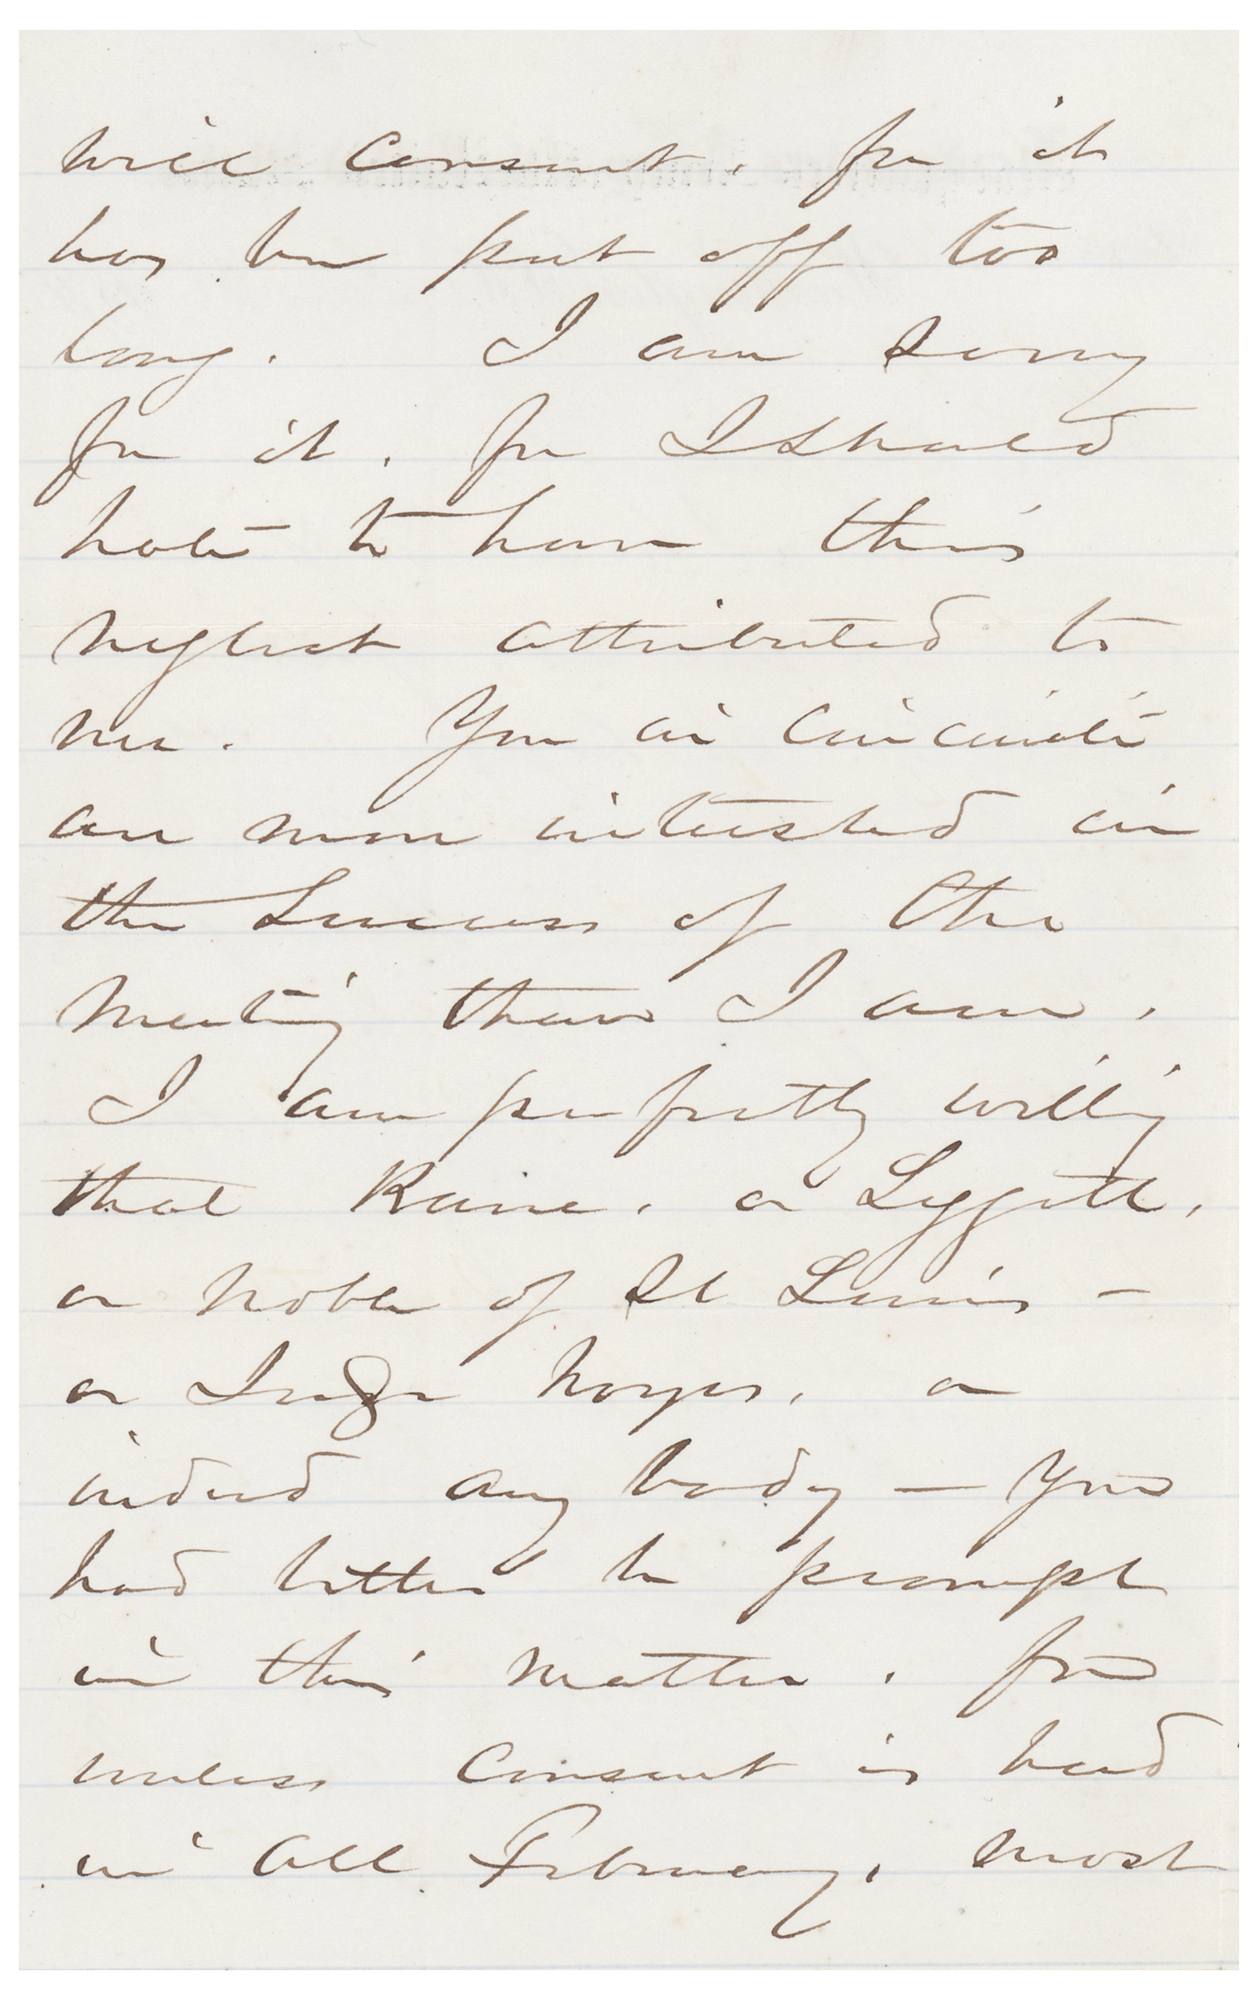 will consent, for it
has been put off too
long. I am sorry
for it, for I should
hate to have this
neglect attributed to
me. You in Cincinnati
are more interested in
the success of the
meeting than I am.
I am perfectly willing
that Raine, or Leggett,
or Noble of St Louis -
or Judge Noyes, or
indeed any body — You
had better be prompt
in this matter, for
unless consent is had
in all February, most